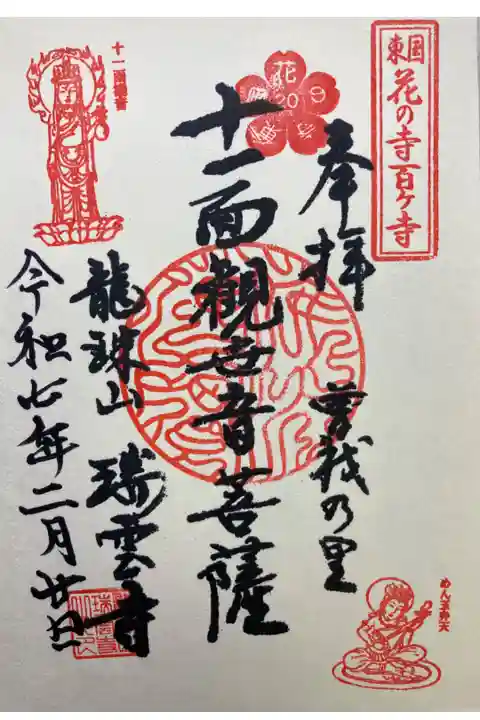 東国
花の寺百ヶ寺
奉拝
曽我乃里
花
20
十一面觀世音菩薩
十一面観音
龍珠山 瑞雲寺
令和七年二月廿